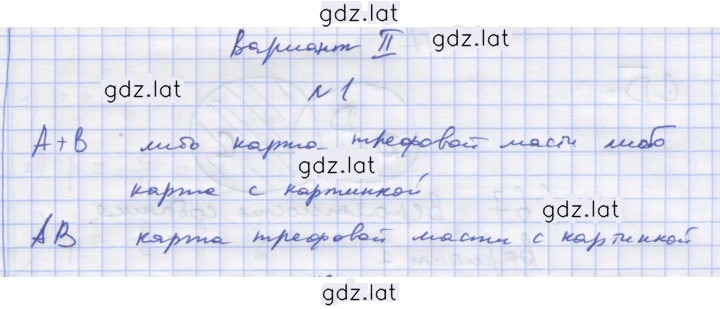 gdz.lat
Вариант II
gdz.lat gdz.lat
№1
A+B либо карта трефовой масти либо
gdz.lat
карта с картинкой
gdz.lat
AB карта трефовой масти с картинкой
gdz.lat
gdz.lat